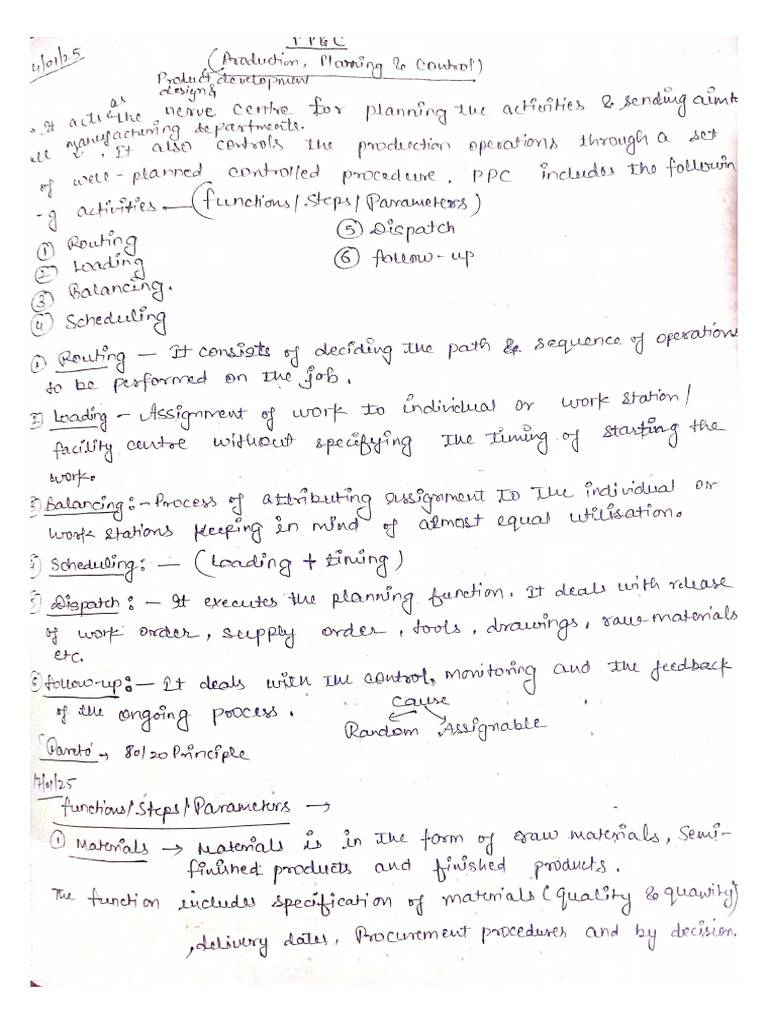 PP&C
4/01/25
(Production, Planning & Control)
Product development
designs
. It acts as the nerve centre for planning the activities & sending aim to
all manufacturing departments.
. It also controls the production operations through a set
of well-planned controlled procedure. PPC includes the followin
-g activities — (functions/Steps/Parameters)
① Routing
② Loading
③ Balancing.
④ Scheduling
⑤ Dispatch
⑥ follow-up
① Routing — It consists of deciding the path & sequence of operations
to be performed on the job.
② Loading - Assignment of work to individual or work station/
facility centre without specifying the timing of starting the
work.
③ Balancing :- Process of attributing assignment to the individual or
work stations keeping in mind of almost equal utilisation.
④ Scheduling: — (Loading + timing)
⑤ Dispatch : — It executes the planning function. It deals with release
of work order, supply order, tools, drawings, raw materials
etc.
⑥ follow-up: — It deals with the control, monitoring and the feedback
of the ongoing process.
cause
Random Assignable
Pareto → 80/20 Principle
7/01/25
functions/Steps/Parameters →
① Materials → Materials is in the form of raw materials, Semi-
finished products and finished products.
The function includes specification of materials (quality & quantity)
, delivery dates, Procurement procedures and by decision.